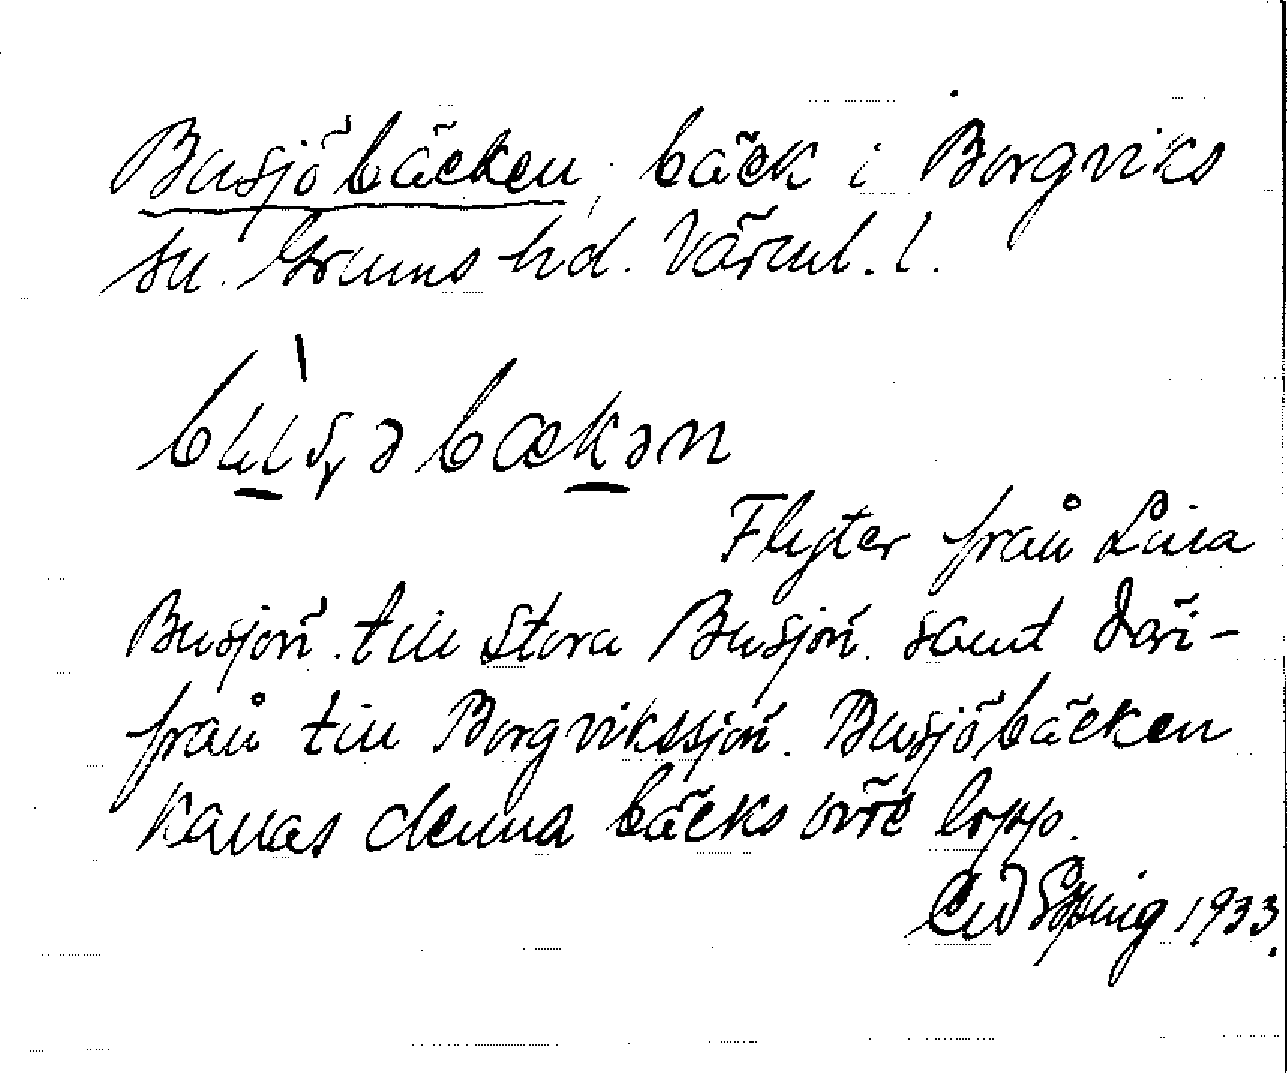 Busjöbäcken, bäck i Borgviks
sn. Grums hd. Värml. l.
Flyter från Lilla
Busjön till Stora Busjön samt däri-
från till Borgvikssjön. Busjöbäcken
kallas denna bäcks övre lopp.
1933.